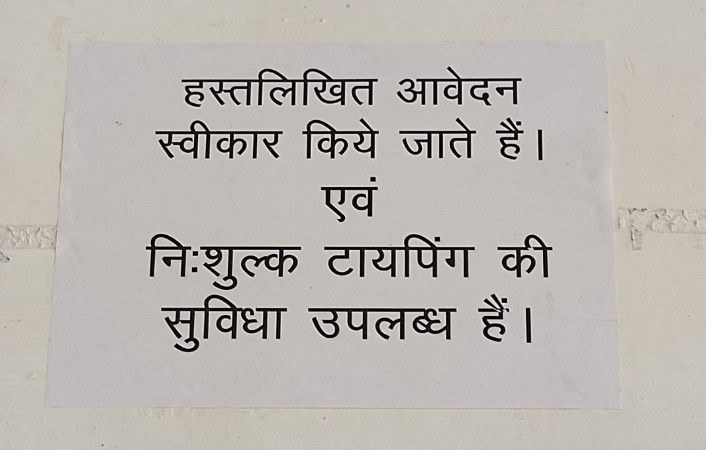 हस्तलिखित आवेदन
स्वीकार किये जाते हैं।
एवं
नि:शुल्क टायपिंग की
सुविधा उपलब्ध हैं।